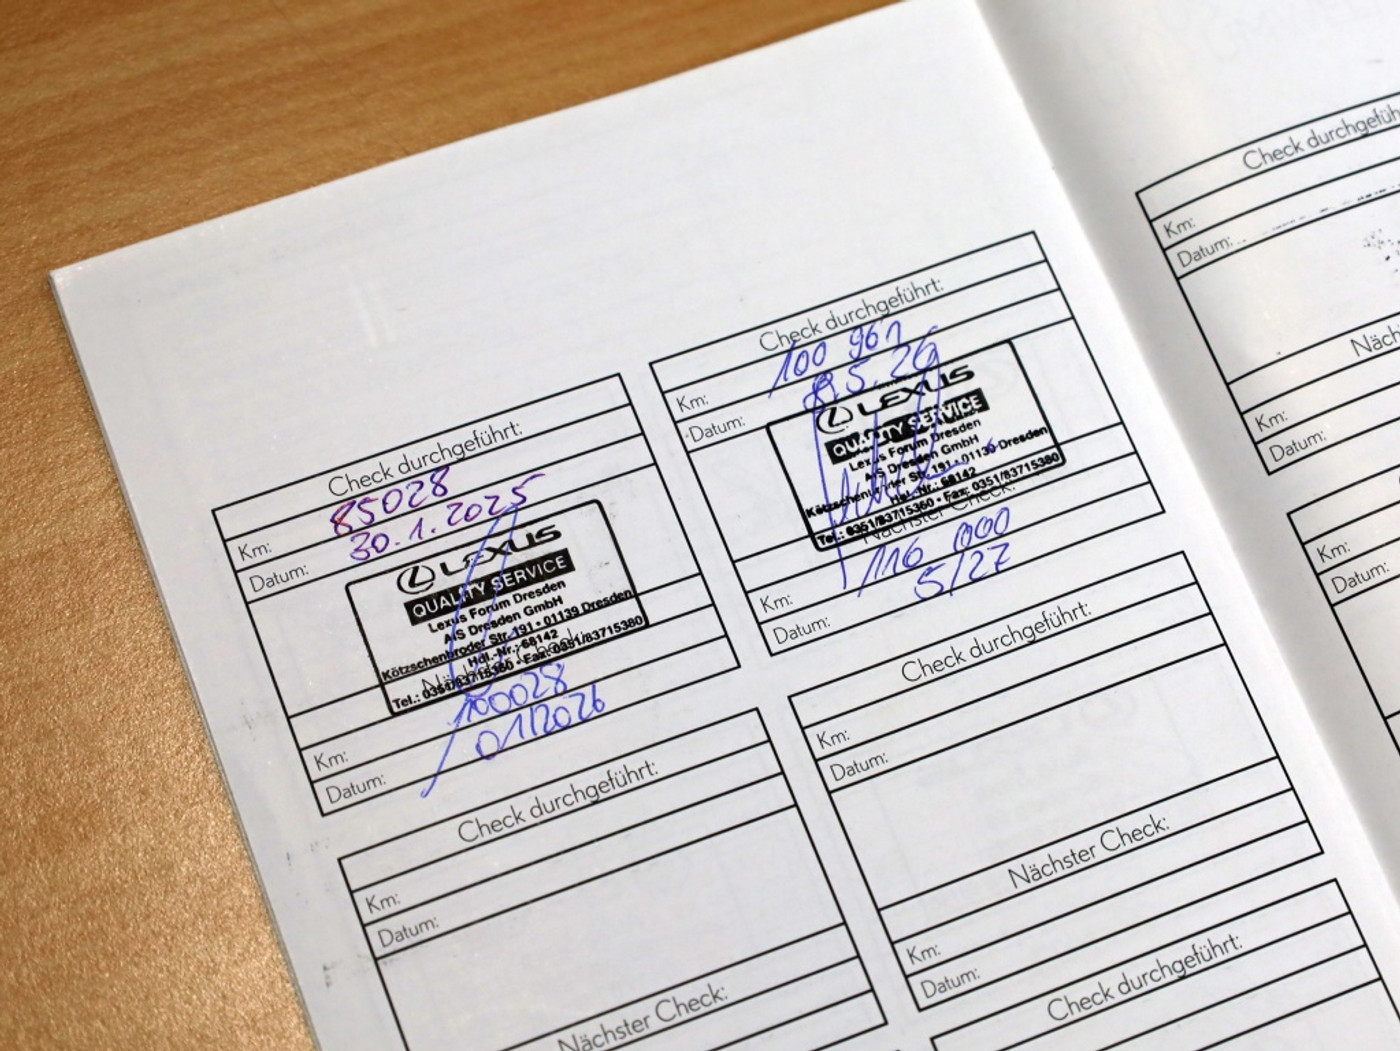 Check durchgeführt:
Km: 85028
Datum: 30.1.2025
LEXUS
QUALITY SERVICE
Lexus Forum Dresden
A-S Dresden GmbH
Kötzschenbroder Str. 191 • 01139 Dresden
Hdl.-Nr.: 68142
Tel.: 0351/83715360 • Fax: 0351/83715380
Nächster Check:
Km: 100028
Datum: 01/2026
Check durchgeführt:
Km: 100 961
Datum: 8.5.26
LEXUS
QUALITY SERVICE
Lexus Forum Dresden
A-S Dresden GmbH
Kötzschenbroder Str. 191 • 01139 Dresden
Hdl.-Nr.: 68142
Tel.: 0351/83715360 • Fax: 0351/83715380
Nächster Check:
Km: 116 000
Datum: 5/27
Check durchgeführt:
Km:
Datum:
Nächster Check:
Check durchgeführt:
Km:
Datum:
Nächster Check:
Km:
Datum:
Check durchgeführt:
Check durchgeführt
Km:
Datum:
Km:
Datum:
Km:
Datum: